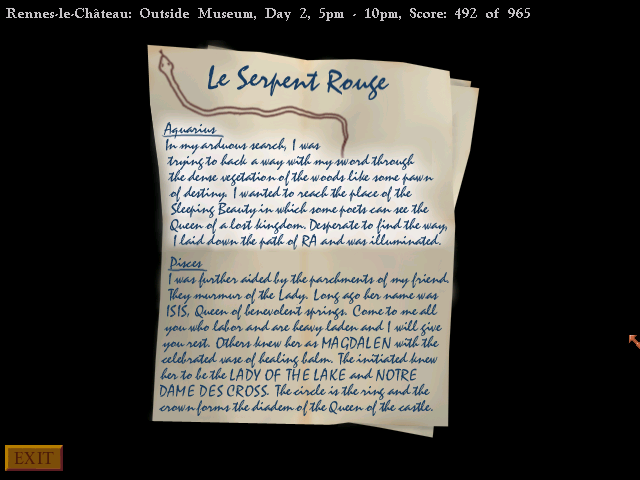 Rennes-le-Château: Outside Museum, Day 2, 5pm - 10pm, Score: 492 of 965
Le Serpent Rouge
Aquarius
In my arduous search, I was
trying to hack a way with my sword through
the dense vegetation of the woods like some pawn
of destiny. I wanted to reach the place of the
Sleeping Beauty in which some poets can see the
Queen of a lost kingdom. Desperate to find the way,
I laid down the path of RA and was illuminated.
Pisces
I was further aided by the parchments of my friend.
They murmur of the Lady. Long ago her name was
ISIS, Queen of benevolent springs. Come to me all
you who labor and are heavy laden and I will give
you rest. Others knew her as MAGDALEN with the
celebrated vase of healing balm. The initiated knew
her to be the LADY OF THE LAKE and NOTRE
DAME DES CROSS. The circle is the ring and the
crown forms the diadem of the Queen of the castle.
EXIT